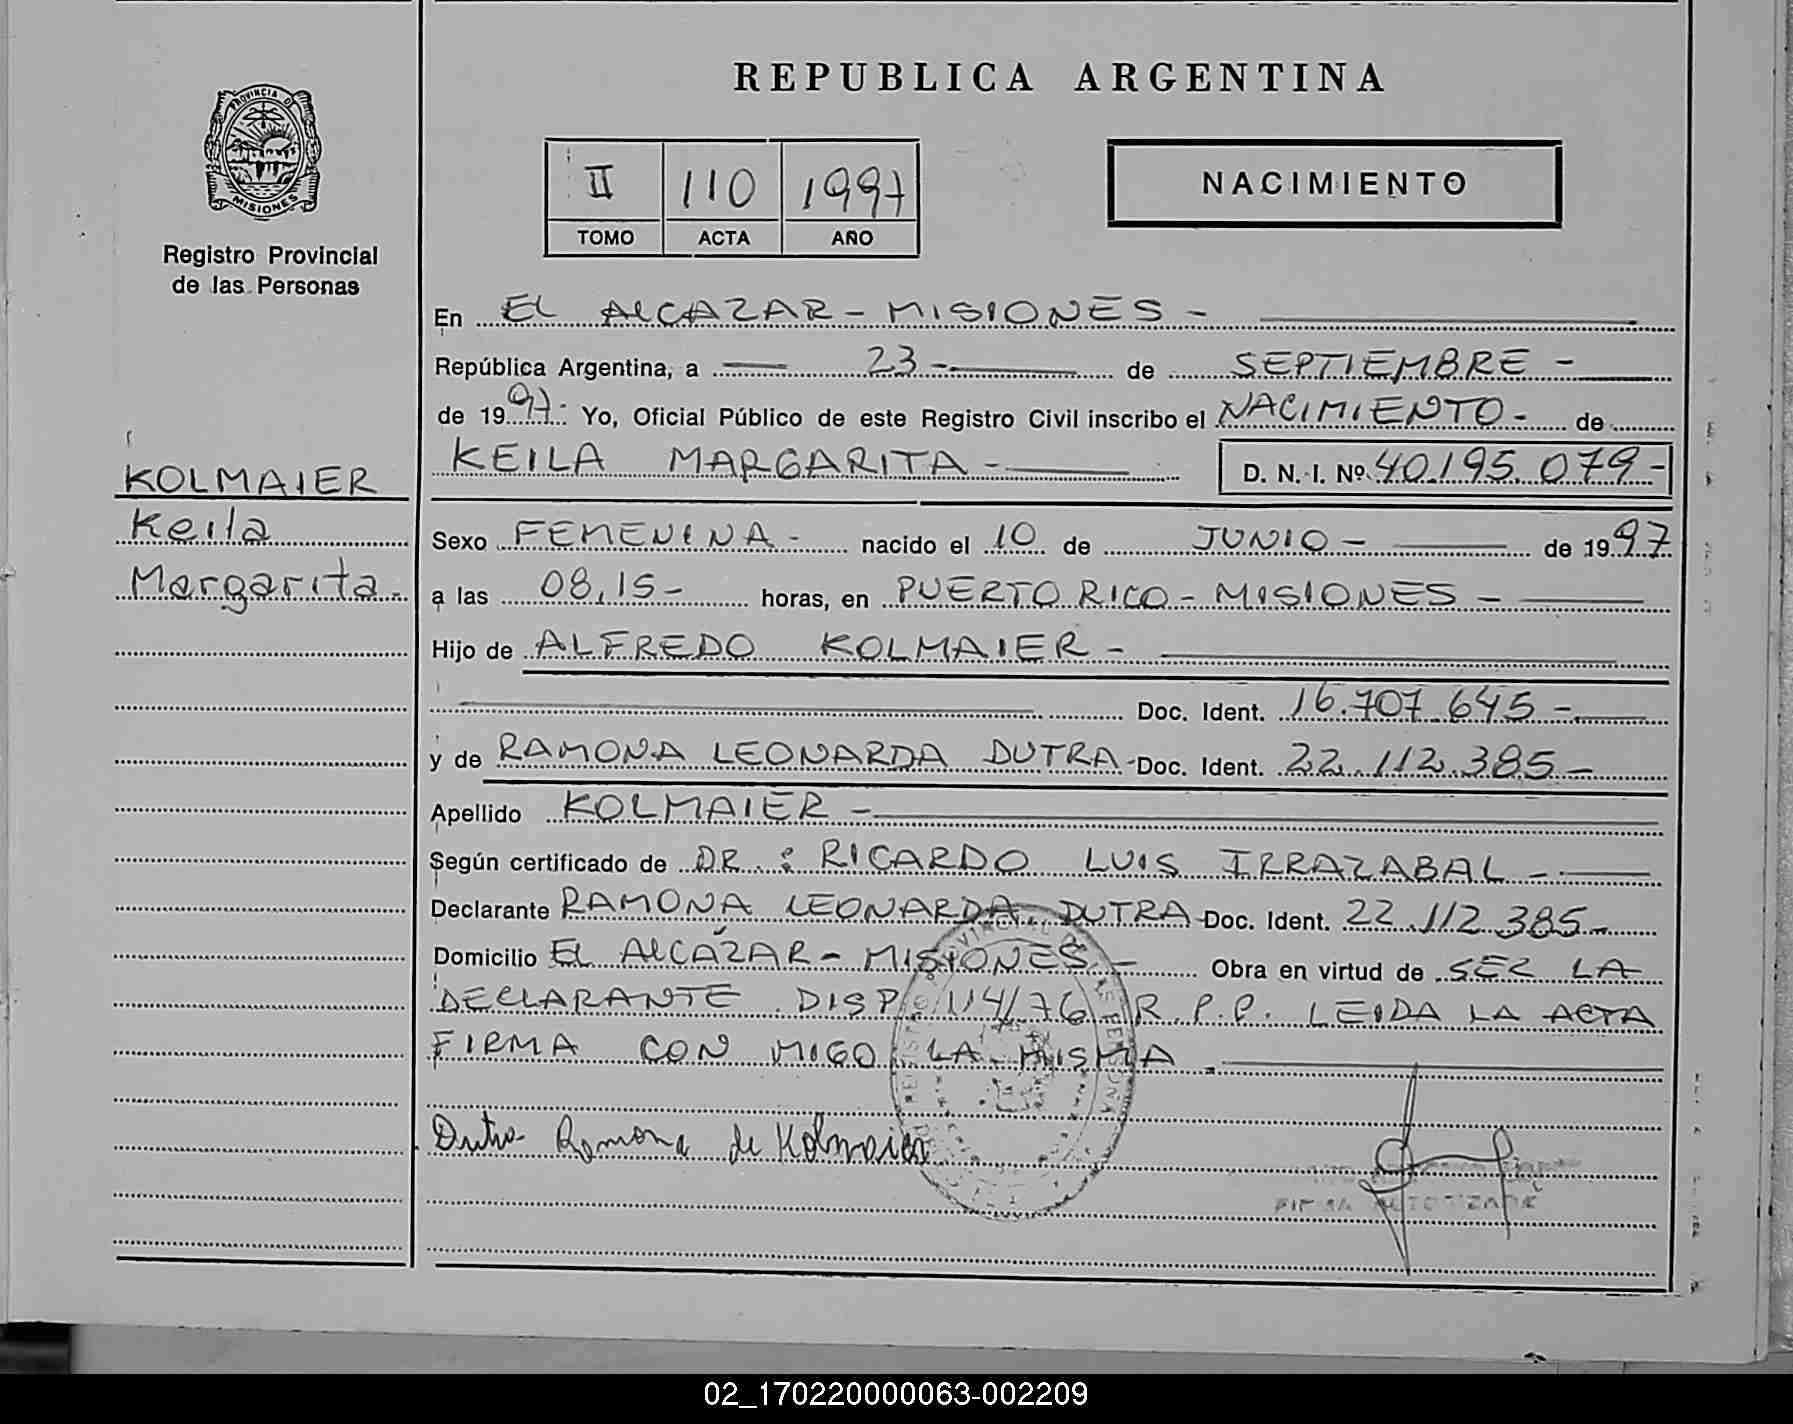 REPUBLICA ARGENTINA
PROVINCIA DE
MISIONES
Registro Provincial
de las Personas
II 110 1997
TOMO ACTA AÑO
NACIMIENTO
En EL ALCAZAR - MISIONES -
República Argentina, a 23 - de SEPTIEMBRE -
de 1997.- Yo, Oficial Público de este Registro Civil inscribo el NACIMIENTO - de
KEILA MARGARITA - D. N. I. Nº 40.195.079 -
KOLMAIER
Keila
Margarita.
Sexo FEMENINA - nacido el 10 de JUNIO - de 1997
a las 08,15 - horas, en PUERTO RICO - MISIONES -
Hijo de ALFREDO KOLMAIER -
Doc. Ident. 16.707.645 -
y de RAMONA LEONARDA DUTRA - Doc. Ident. 22.112.385 -
Apellido KOLMAIER -
Según certificado de DR.: RICARDO LUIS IRRAZABAL -
Declarante RAMONA LEONARDA DUTRA Doc. Ident. 22.112.385 -
Domicilio EL ALCAZAR - MISIONES - Obra en virtud de SER LA
DECLARANTE DISP. 114/76 R.P.P. LEIDA LA ACTA
FIRMA CON MIGO LA MISMA.
Dutra Ramona de Kolmaier
FIRMA AUTORIZADA
02_170220000063-002209